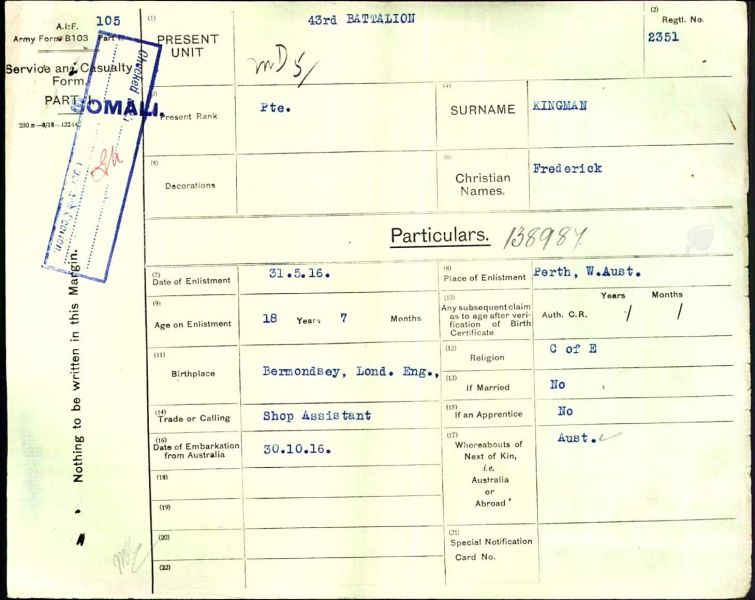 A.I.F. 105
Army Form B103 Part
Service and Casualty
Form.
PART
SOMALI.
Checked
Nothing to be written in this Margin.
(1) 43rd BATTALION
PRESENT
UNIT
(2)
Regtl. No.
2351
Present Rank Pte.
(4) SURNAME KINGMAN
(5) Decorations
(6) Christian
Names. Frederick
Particulars. 138987
(7) Date of Enlistment 31.5.16.
(8) Place of Enlistment Perth, W.Aust.
(9) Age on Enlistment 18 Years 7 Months
(10) Any subsequent claim
as to age after veri-
fication of Birth
Certificate
Years Months
Auth. C.R. / /
(11) Birthplace Bermondsey, Lond. Eng.,
(12) Religion C of E
(13) If Married No
(14) Trade or Calling Shop Assistant
(15) If an Apprentice No
(16) Date of Embarkation
from Australia 30.10.16.
(17) Whereabouts of
Next of Kin,
i.e.
Australia
or
Abroad
Aust.
(18)
(19)
(20)
(21) Special Notification
Card No.
(22)